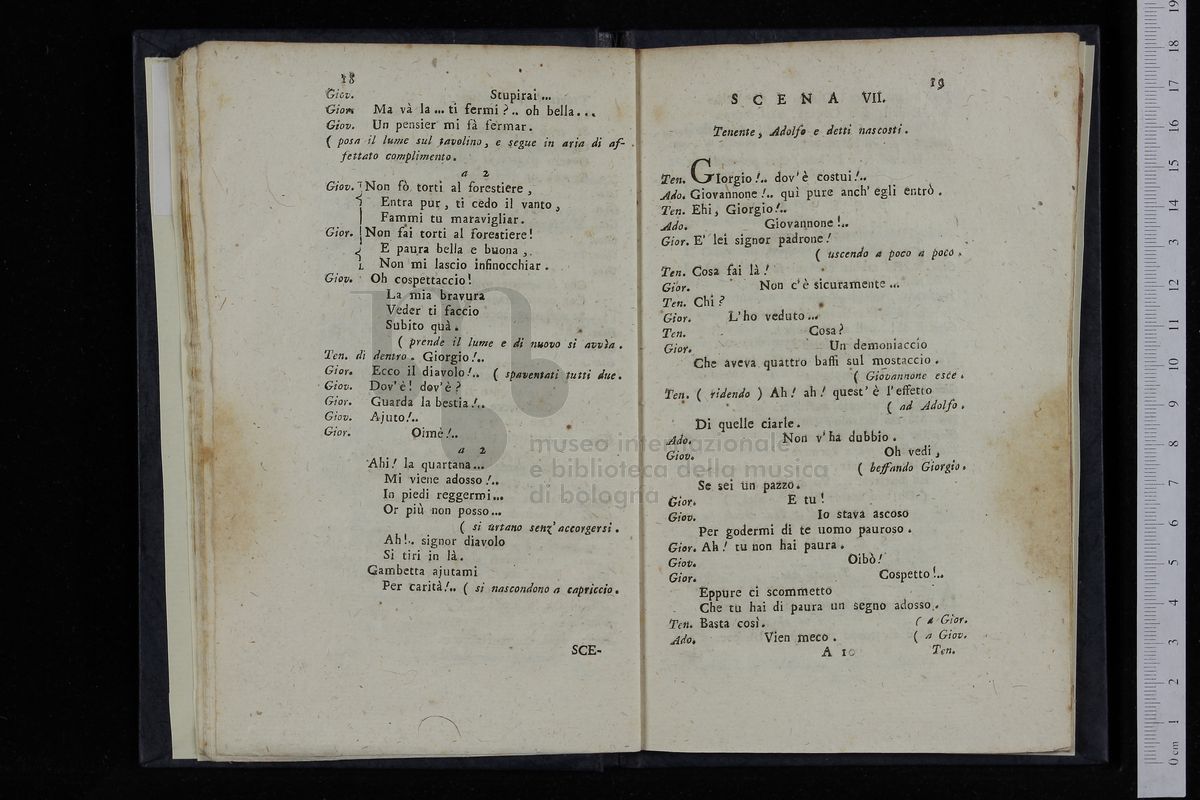 18
Giov. Stupirai ...
Gior. Ma và la ... ti fermi ?.. oh bella...
Giov. Un pensier mi fà fermar.
( posa il lume sul tavolino, e segue in aria di af-
fettato complimento.
a 2
Giov. Non fò torti al forestiere,
Entra pur, ti cedo il vanto,
Fammi tu maravigliar.
Gior. Non fai torti al forestiere!
E paura bella e buona,
Non mi lascio infinocchiar.
Giov. Oh cospettaccio!
La mia bravura
Veder ti faccio
Subito quà.
( prende il lume e di nuovo si avvìa.
Ten. di dentro. Giorgio!..
Gior. Ecco il diavolo!.. ( spaventati tutti due.
Giov. Dov'è! dov'è?
Gior. Guarda la bestia!..
Giov. Ajuto!..
Gior. Oimè!..
a 2
Ahi! la quartana...
Mi viene adosso!..
In piedi reggermi...
Or più non posso...
( si urtano senz'accorgersi.
Ah!.. signor diavolo
Si tiri in là.
Gambetta ajutami
Per carità!.. ( si nascondono a capriccio.
SCE-
19
SCENA VII.
Tenente, Adolfo e detti nascosti.
Ten. GIorgio!.. dov'è costui!..
Ado. Giovannone!.. quì pure anch'egli entrò.
Ten. Ehi, Giorgio!..
Ado. Giovannone!..
Gior. E' lei signor padrone!
( uscendo a poco a poco.
Ten. Cosa fai là!
Gior. Non c'è sicuramente...
Ten. Chi?
Gior. L'ho veduto...
Ten. Cosa?
Gior. Un demoniaccio
Che aveva quattro baffi sul mostaccio.
( Giovannone esce.
Ten. ( ridendo ) Ah! ah! quest'è l'effetto
( ad Adolfo.
Di quelle ciarle.
Ado. Non v'ha dubbio.
Giov. Oh vedi,
( beffando Giorgio.
Se sei un pazzo.
Gior. E tu!
Giov. Io stava ascoso
Per godermi di te uomo pauroso.
Gior. Ah! tu non hai paura.
Giov. Oibò!
Gior. Cospetto!..
Eppure ci scommetto
Che tu hai di paura un segno adosso.
Ten. Basta così. ( a Gior.
Ado. Vien meco. ( a Giov.
A 10 Ten.
museo internazionale
e biblioteca della musica
di bologna
0 cm 1 2 3 4 5 6 7 8 9 10 11 12 13 14 15 16 17 18 19